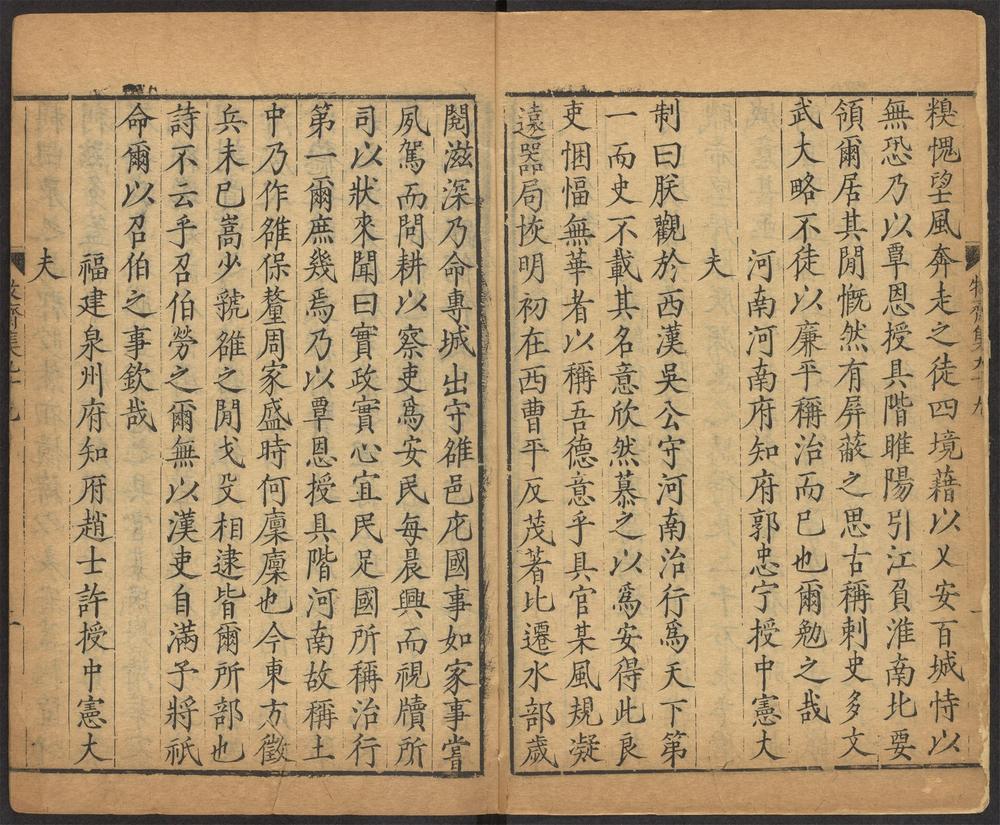 糗愧望風奔走之徒四境藉以乂安百城恃以
無恐乃以覃恩授具階睢陽引江負淮南北要
領爾居其閒慨然有屏蔽之思古稱刺史多文
武大略不徒以廉平稱治而已也爾勉之哉
河南河南府知府郭忠寧授中憲大
夫
制曰朕觀於西漢吳公守河南治行爲天下第
一而史不載其名意欣然慕之以爲安得此良
吏悃愊無華者以稱吾德意乎具官某風規凝
遠器局恢明初在西曹平反茂著比遷水部歲
閱滋深乃命專城出守雒邑庀國事如家事嘗
夙駕而問耕以察吏爲安民每晨興而視牘所
司以狀來聞曰實政實心宜民足國所稱治行
第一爾庶幾焉乃以覃恩授具階河南故稱土
中乃作雒保釐周家盛時何廩廩也今東方徵
兵未已嵩少虢雒之閒戈殳相逮皆爾所部也
詩不云乎召伯勞之爾無以漢吏自滿予將祇
命爾以召伯之事欽哉
福建泉州府知府趙士許授中憲大
夫